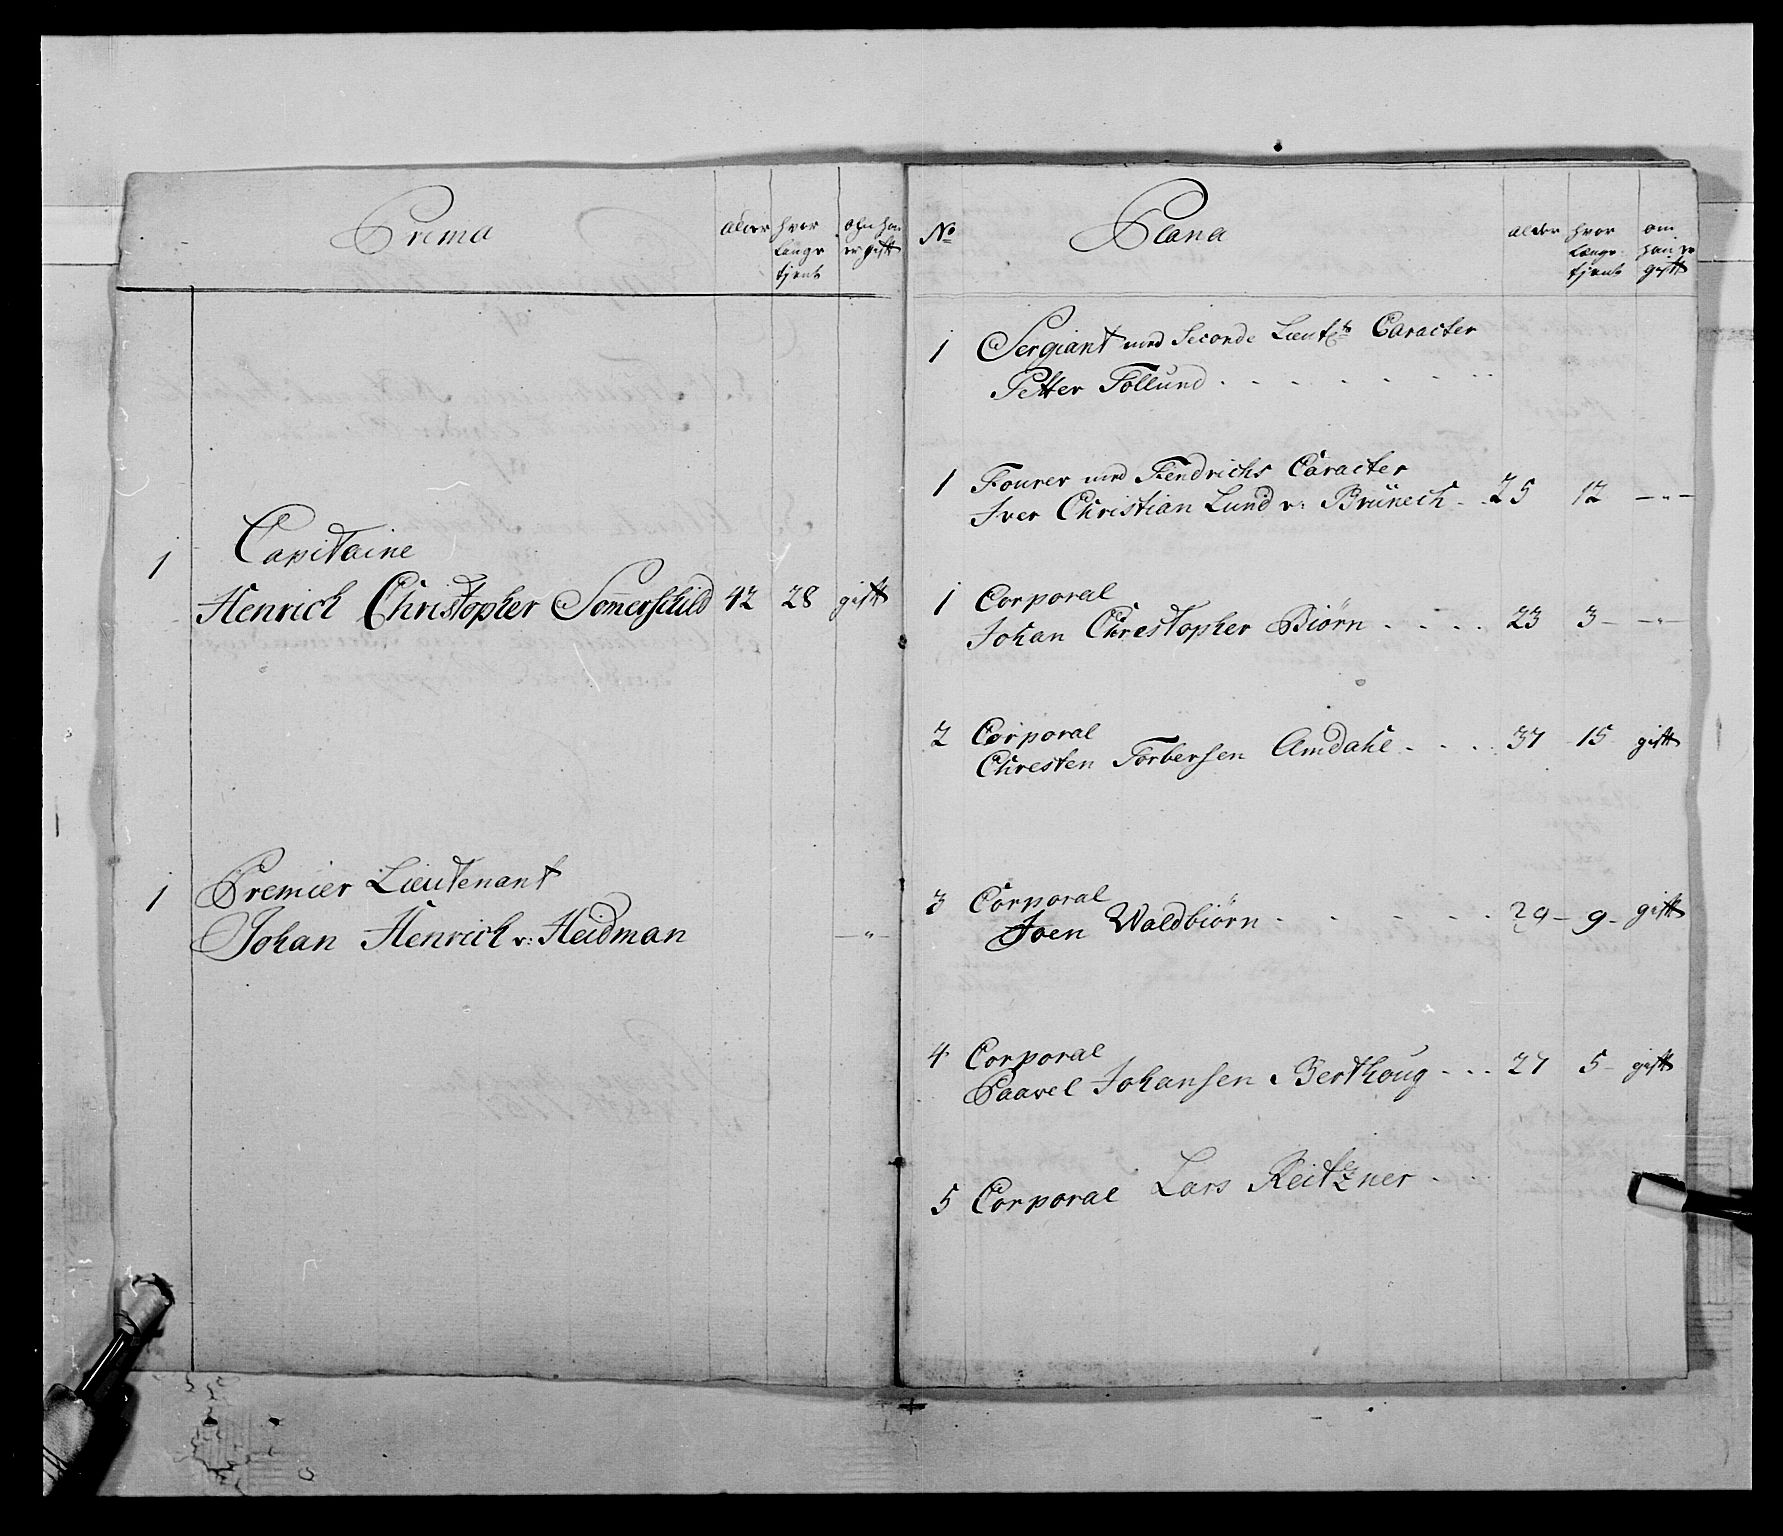 Prima
alder
hvor
længe
tjent
om han
er gift
1 Capitaine
Henrich Christopher Somerschild 42 28 gift
1 Premier Lieutenant
Johan Henrich v: Heidman — " —
No
Plana
alder
hvor
længe
tjent
om
han er
gift
1 Sergiant med Seconde Lieut:ts Caracter
Petter Follund . . . . . . . .
1 Fourer med Fendrichs Caracter
Iver Christian Lund v: Brünech . . 25 12 — " —
1 Corporal
Johan Chrestopher Biørn . . . . 23 3 — — " —
2 Corporal
Chresten Torbersen Amdahl . . . . 37 15 gift
3 Corporal
Joen Waldbiørn . . . . . . 29 — 9 — gift
4 Corporal
Paavel Johansen Berthoug . . . 27 5 — gift
5 Corporal Lars Reitzner . .